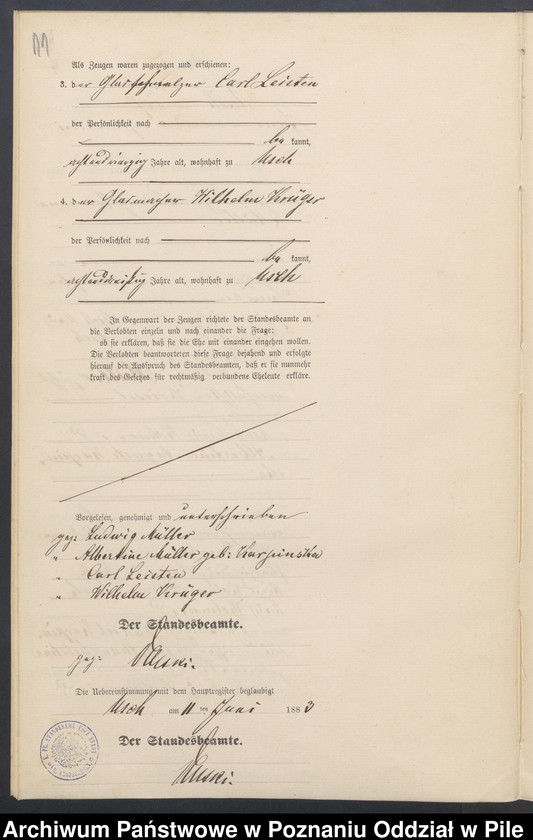 11
Als Zeugen waren zugezogen und erschienen:
3. der Glasschmelzer Carl Leisten
der Persönlichkeit nach
be kannt,
achtundvierzig Jahre alt, wohnhaft zu Usch
4. der Glasmacher Wilhelm Krüger
der Persönlichkeit nach
be kannt,
achtunddreißig Jahre alt, wohnhaft zu Usch
In Gegenwart der Zeugen richtete der Standesbeamte an
die Verlobten einzeln und nach einander die Frage:
ob sie erklären, daß sie die Ehe mit einander eingehen wollen.
Die Verlobten beantworteten diese Frage bejahend und erfolgte
hierauf der Ausspruch des Standesbeamten, daß er sie nunmehr
kraft des Gesetzes für rechtmäßig verbundene Eheleute erkläre.
Vorgelesen, genehmigt und unterschrieben
gez: Ludwig Müller
" Albertine Müller geb: Karpinska
" Carl Leisten
" Wilhelm Krüger
Der Standesbeamte.
gez:
Die Uebereinstimmung mit dem Hauptregister beglaubigt
Usch am 11 ten Juni 1883
Der Standesbeamte.
Archiwum Państwowe w Poznaniu Oddział w Pile